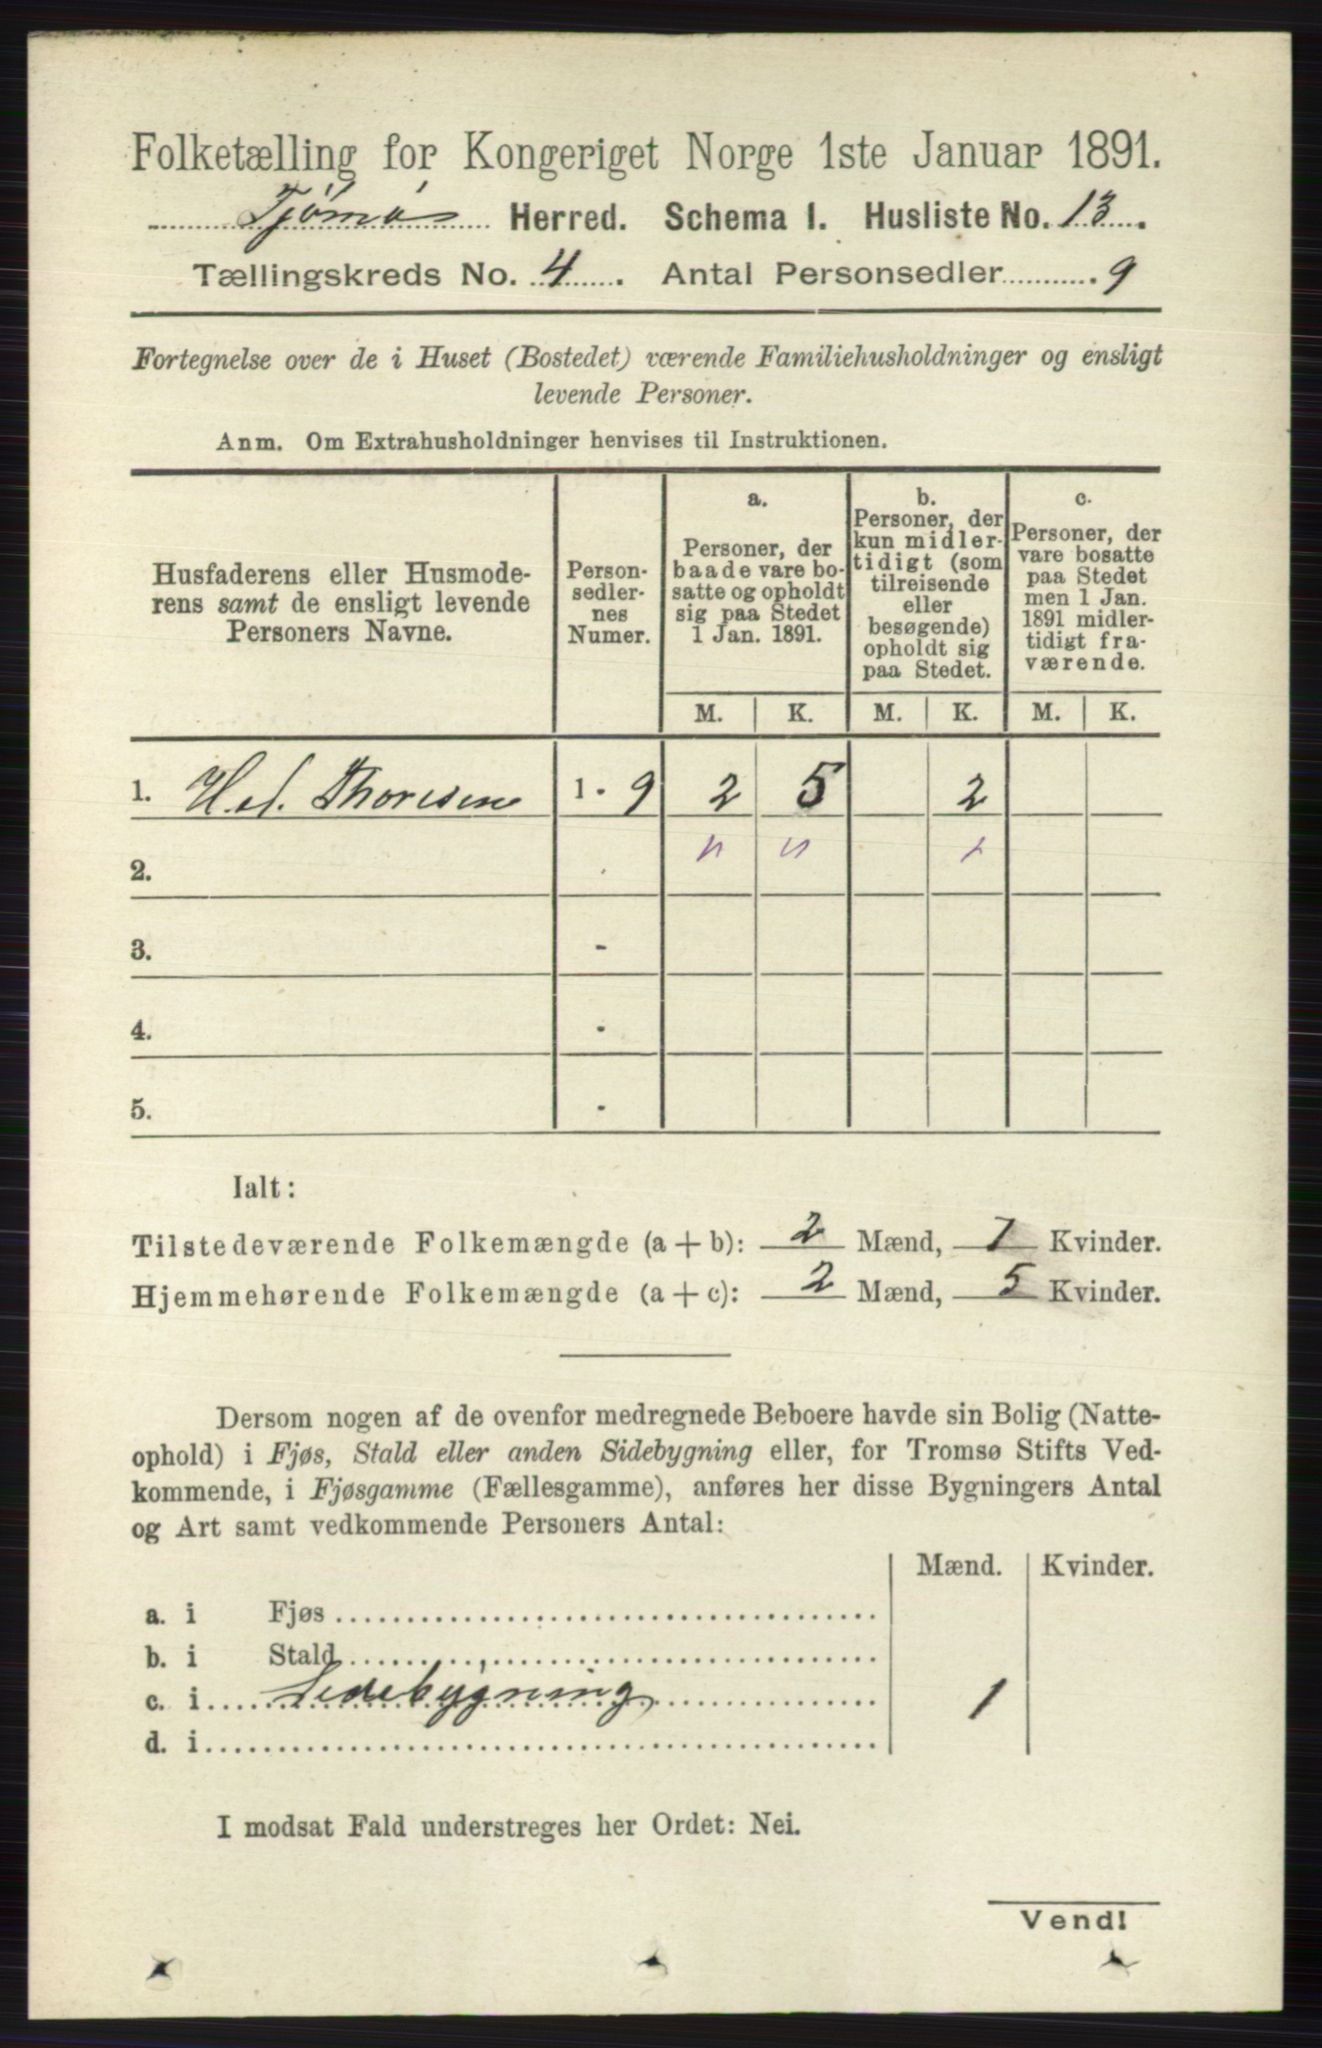 Folketælling for Kongeriget Norge 1ste Januar 1891.
Tjømø Herred. Schema I. Husliste No. 13.
Tællingskreds No. 4. Antal Personsedler 9
Fortegnelse over de i Huset (Bostedet) værende Familiehusholdninger og ensligt
levende Personer.
Anm. Om Extrahusholdninger henvises til Instruktionen.
Husfaderens eller Husmode-
rens samt de ensligt levende
Personers Navne.
Person-
sedler-
nes
Numer.
a.
Personer, der
baade vare bo-
satte og opholdt
sig paa Stedet
1 Jan. 1891.
b.
Personer, der
kun midler-
tidigt (som
tilreisende
eller
besøgende)
opholdt sig
paa Stedet.
c.
Personer, der
vare bosatte
paa Stedet
men 1 Jan.
1891 midler-
tidigt fra-
værende.
M. K. M. K. M. K.
1. Thoresen 1 - 9 2 5 2
2.
3. -
4. -
5. -
Ialt:
Tilstedeværende Folkemængde (a + b): 2 Mænd, 7 Kvinder.
Hjemmehørende Folkemængde (a + c): 2 Mænd, 5 Kvinder.
Dersom nogen af de ovenfor medregnede Beboere havde sin Bolig (Natte-
ophold) i Fjøs, Stald eller anden Sidebygning eller, for Tromsø Stifts Ved-
kommende, i Fjøsgamme (Fællesgamme), anføres her disse Bygningers Antal
og Art samt vedkommende Personers Antal:
Mænd. Kvinder.
a. i Fjøs
b. i Stald
c. i Sidebygning 1
d. i
I modsat Fald understreges her Ordet: Nei.
Vend!